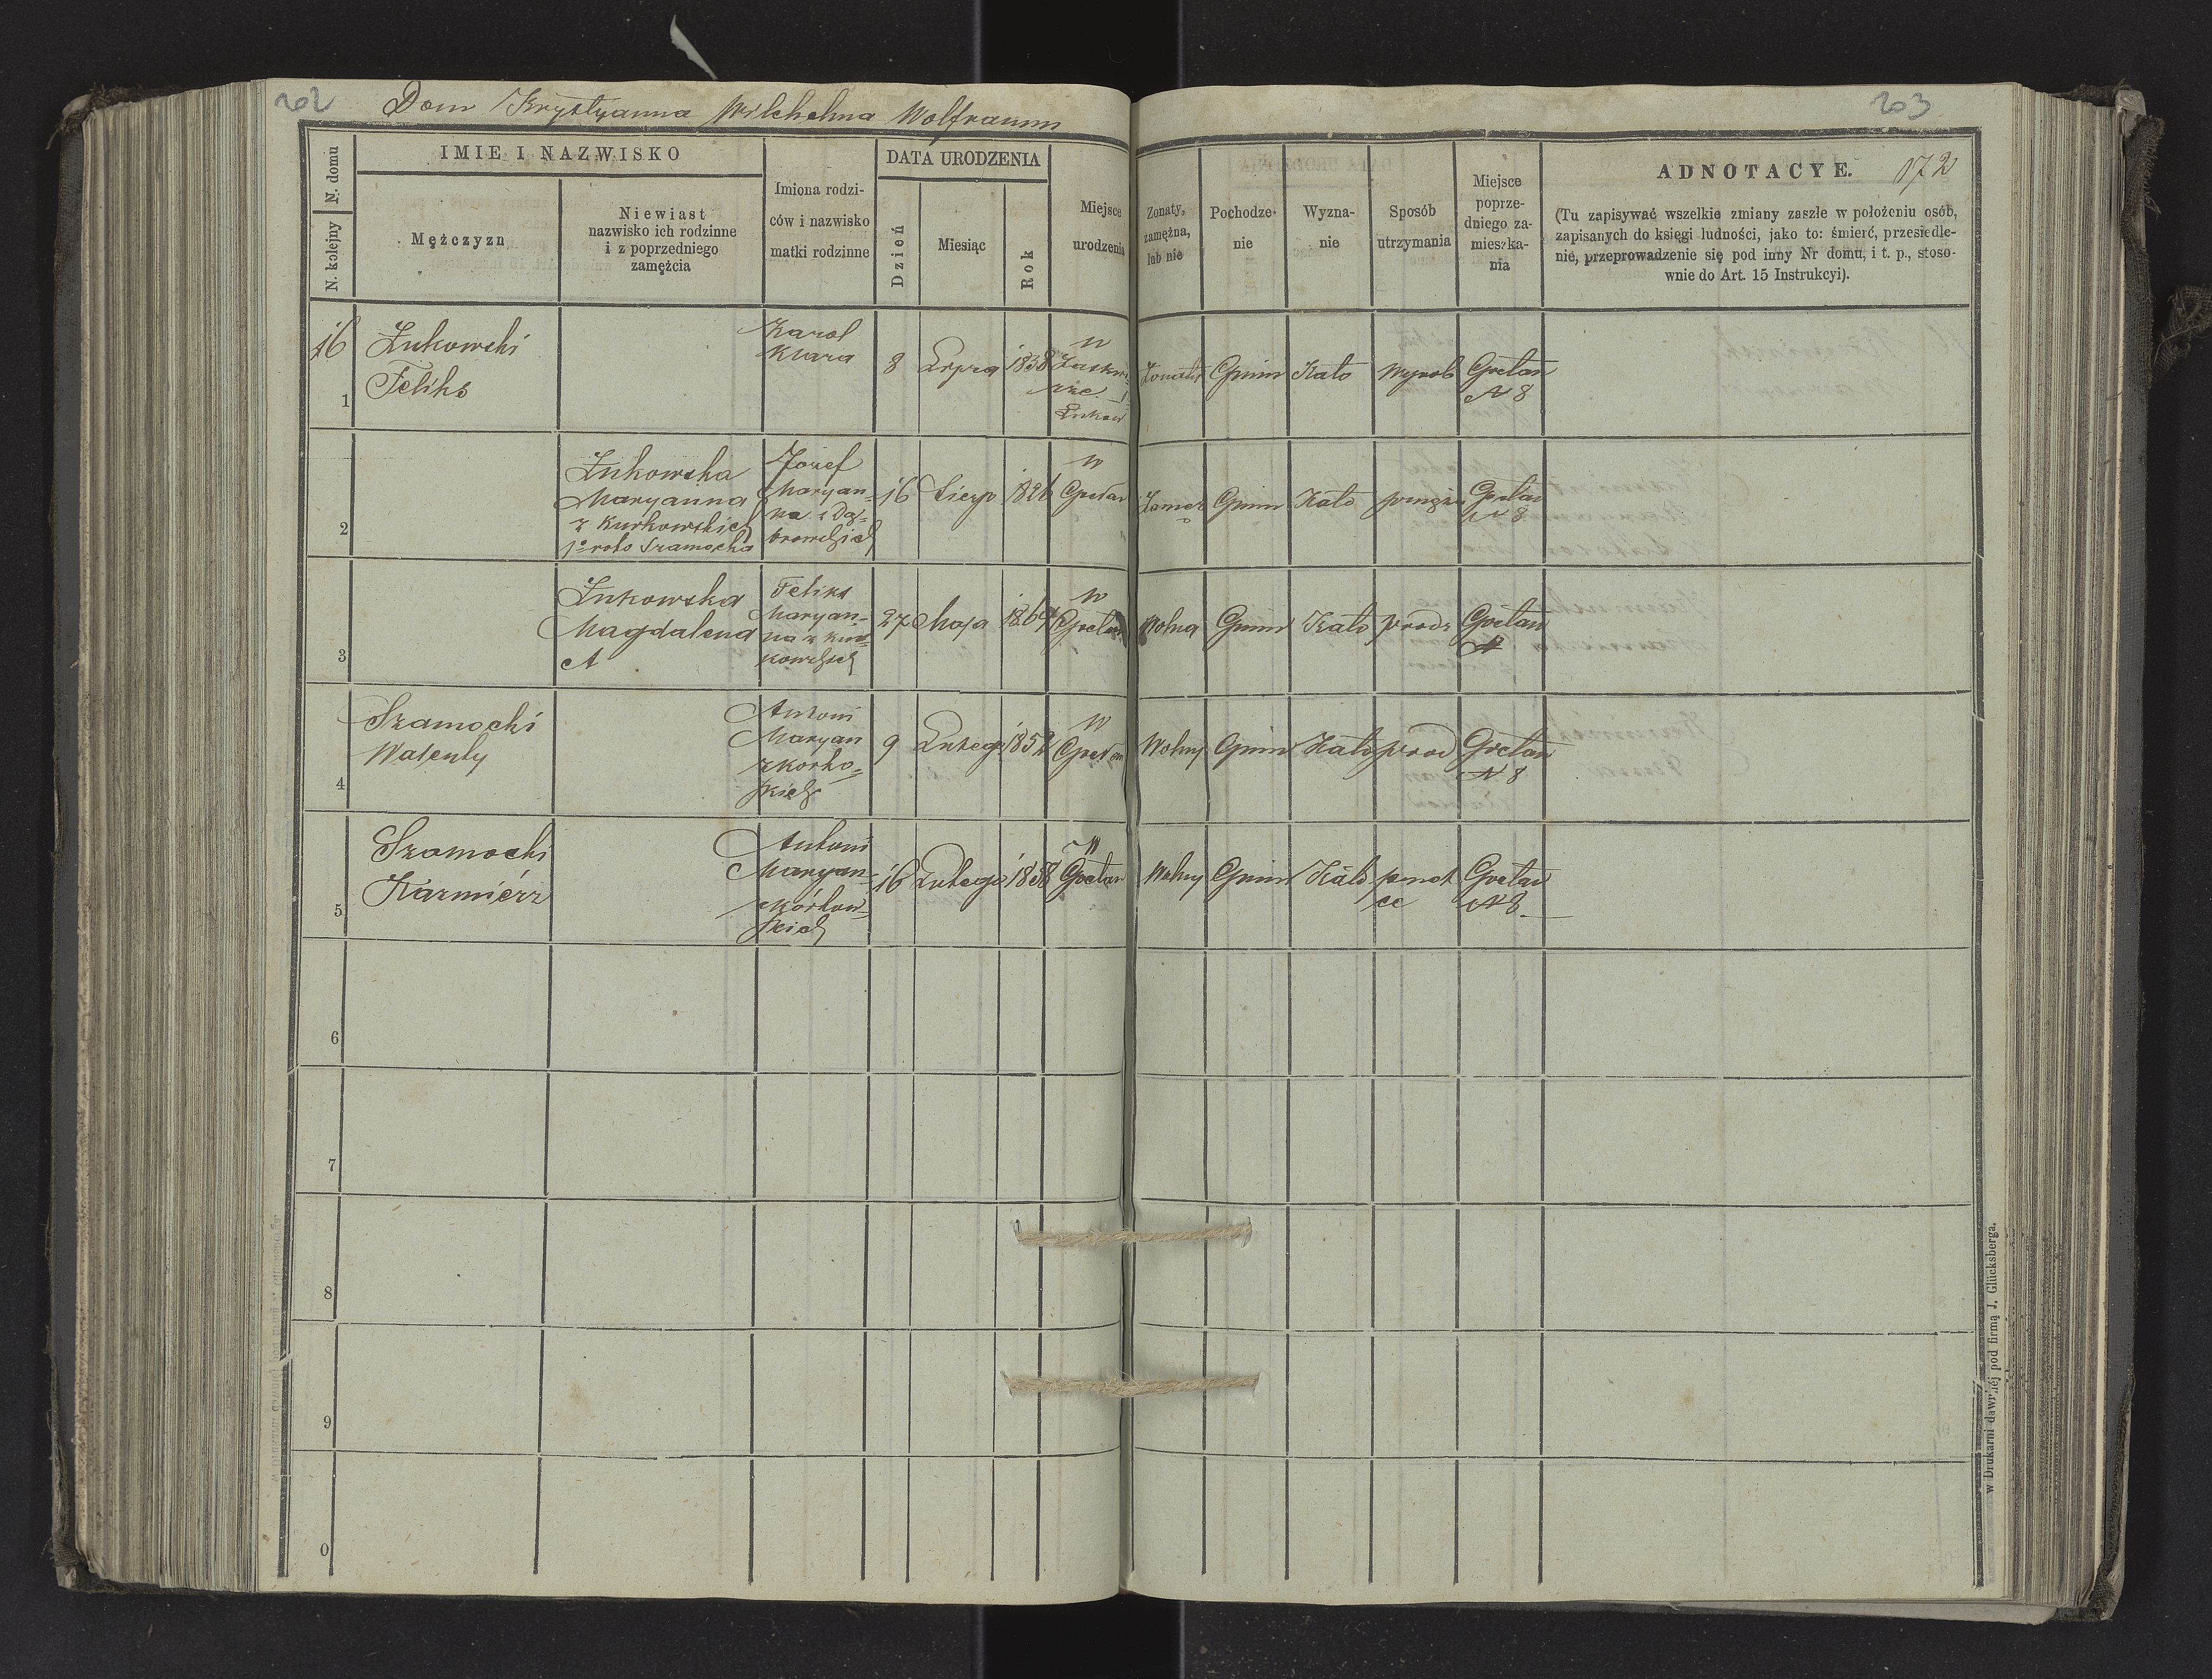 202
Dom Krystyanna Wilchelma Wolframm
N. domu
N. kolejny
IMIE I NAZWISKO
Mężczyzn
Niewiast
nazwisko ich rodzinne
i z poprzedniego
zamężcia
Imiona rodzi-
ców i nazwisko
matki rodzinne
DATA URODZENIA
Dzień
Miesiąc
Rok
Miejsce
urodzenia
203
Żonaty,
zamężna,
lub nie
Pochodze-
nie
Wyzna-
nie
Sposób
utrzymania
Miejsce
poprze-
dniego za-
mieszka-
nia
ADNOTACYE. 172
(Tu zapisywać wszelkie zmiany zaszłe w położeniu osób,
zapisanych do księgi ludności, jako to: śmierć, przesiedle-
nie, przeprowadzenie się pod inny Nr domu, i t. p., stoso-
wnie do Art. 15 Instrukcyi).
16
1
Żukowski
Feliks
Karol
Klara
8
Lipca
1838
w
Łukow
Żonaty
Gmin
Kato
wyrob
Goctan
N 8
2
Żukowska
Maryanna
z Kurkowskich
1º voto Szamocka
Józef
Maryan-
na z Dą-
browskich
16
Sierp
1826
w
Goctan
Zamęż
Gmin
Kato
Goctan
N 8
3
Żukowska
Magdalena
A
Feliks
Maryan-
na z Kur-
kowskich
27
Maja
1864
w
Goctan
Wolna
Gmin
Kato
przodz
Goctan
N
4
Szamocki
Walenty
Antoni
Maryan
z Korko-
skich
9
Lutego
1852
w
Goctan
Wolny
Gmin
Kato
Goctan
N 8
5
Szamocki
Kazmiérz
Antoni
Maryan-
z Korkow-
skich
16
Lutego
1858
w
Goctan
Wolny
Gmin
Kato
Goctan
N 8
6
7
8
9
0
w Drukarni dawniéj pod firmą J. Glücksberga.